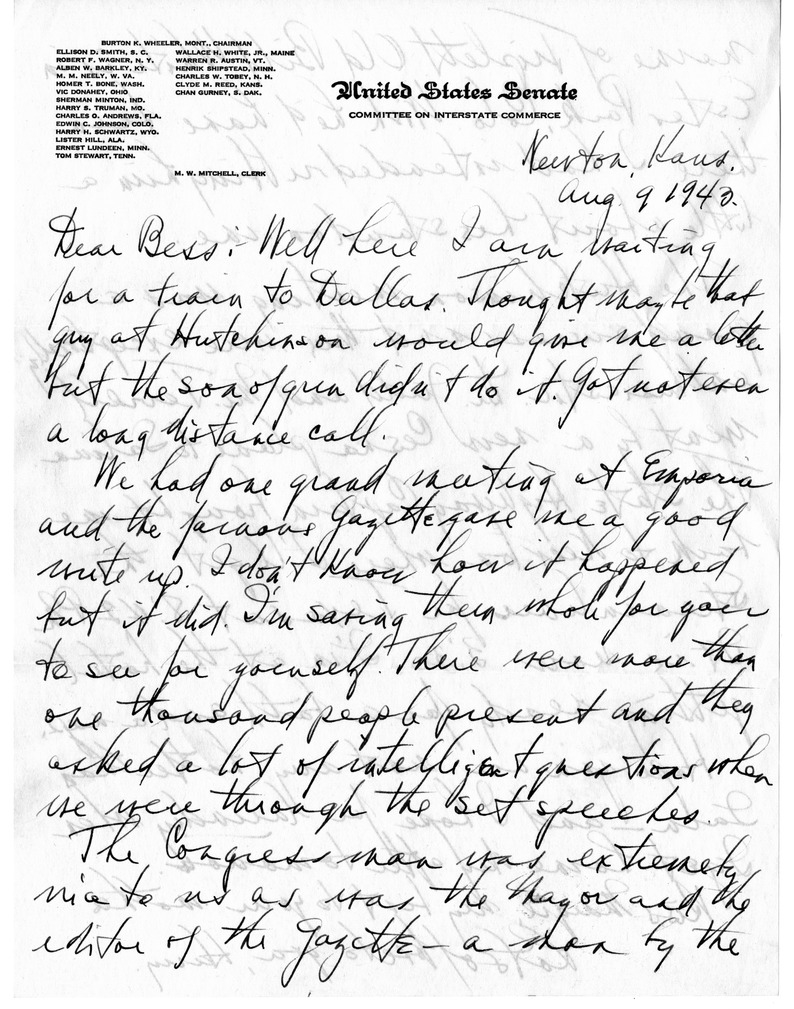 BURTON K. WHEELER, MONT., CHAIRMAN
ELLISON D. SMITH, S. C.
ROBERT F. WAGNER, N. Y.
ALBEN W. BARKLEY, KY.
M. M. NEELY, W. VA.
HOMER T. BONE, WASH.
VIC DONAHEY, OHIO
SHERMAN MINTON, IND.
HARRY S. TRUMAN, MO.
CHARLES O. ANDREWS, FLA.
EDWIN C. JOHNSON, COLO.
HARRY H. SCHWARTZ, WYO.
LISTER HILL, ALA.
ERNEST LUNDEEN, MINN.
TOM STEWART, TENN.
WALLACE H. WHITE, JR., MAINE
WARREN R. AUSTIN, VT.
HENRIK SHIPSTEAD, MINN.
CHARLES W. TOBEY, N. H.
CLYDE M. REED, KANS.
CHAN GURNEY, S. DAK.
M. W. MITCHELL, CLERK
United States Senate
COMMITTEE ON INTERSTATE COMMERCE
Newton, Kans.
Aug. 9 1943.
Dear Bess:- Well here I am waiting
for a train to Dallas. Thought maybe that
guy at Hutchinson would give me a letter
but the son of gun didn't do it. Got not even
a long distance call.
We had one grand meeting at Emporia
and the famous Gazette gave me a good
write up. I don't know how it happened
but it did. I'm saving them whole for you
to see for yourself. There were more than
one thousand people present and they
asked a lot of intelligent questions when
we were through the set speeches.
The Congressman was extremely
nice to us as was the Mayor and the
editor of the Gazette - a man by the